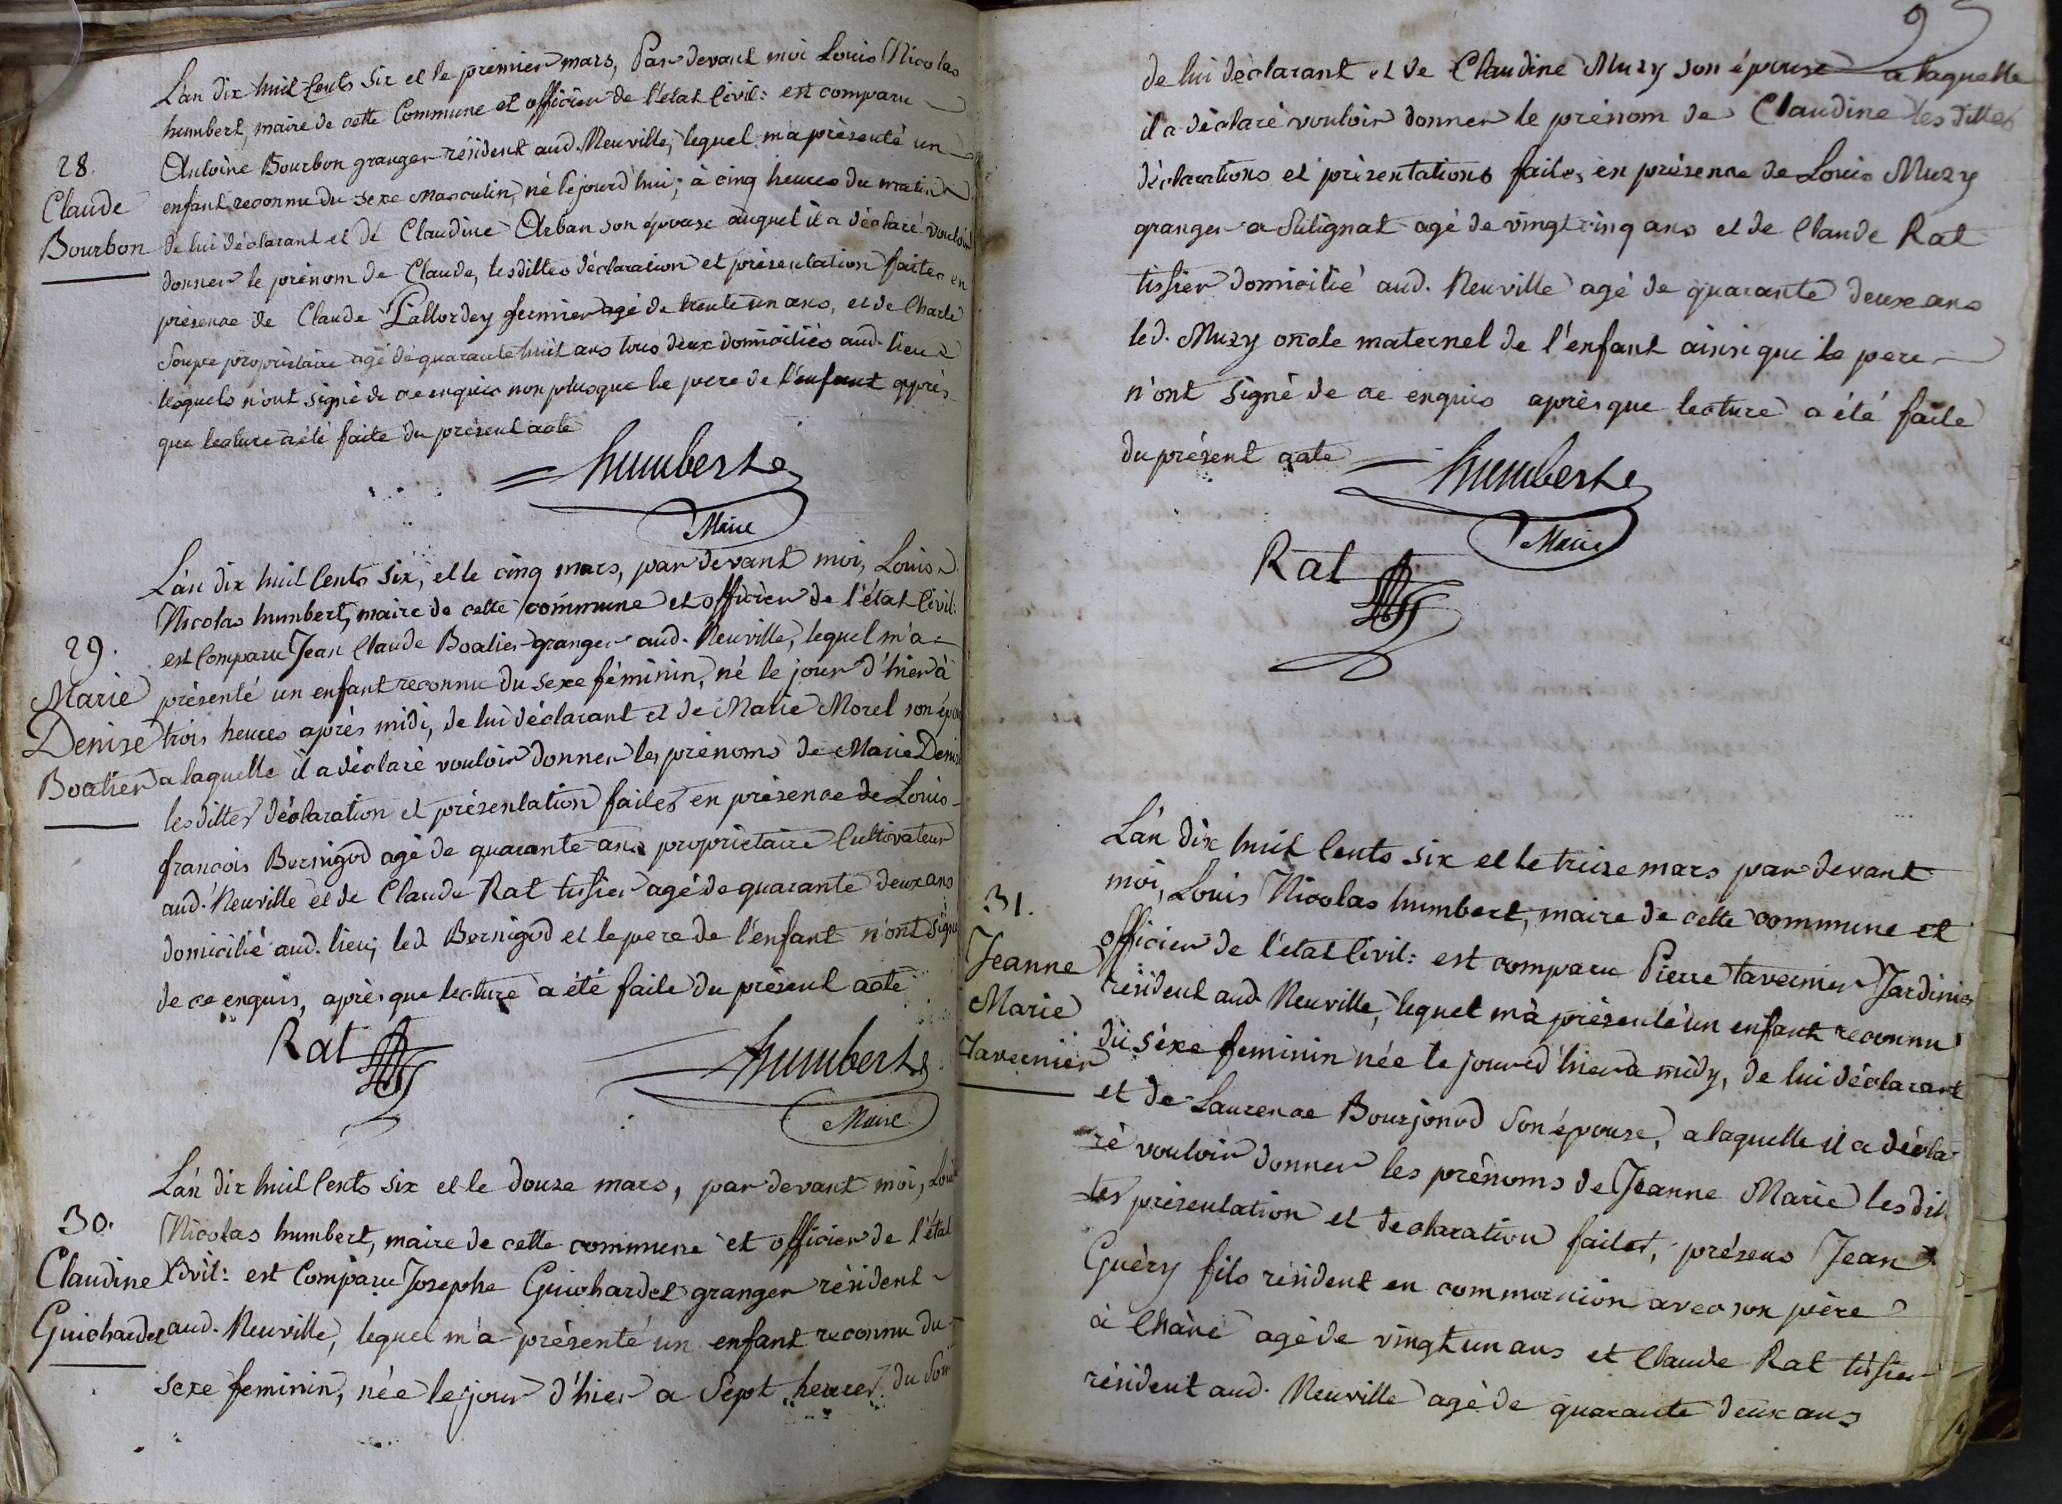 L'an dix huit Cents six et le premier mars, Par devant moi Louis Nicolas
humbert, maire de cette Commune et officier de l'état Civil: est comparu
28.
Claude
Bourbon
Antoine Bourbon granger résident aud. Neuville, lequel m'a présenté un
enfant reconnu du sexe masculin, né lejourd'hui, à cinq heures du matin
de lui déclarant et de Claudine Arban son épouse auquel il a déclaré vouloir
donner le prénom de Claude, lesdittes déclaration et présentation faites en
présence de Claude Pallordey fermier agé de trente un ans, et de Charle
Soupe propriétaire agé de quarante huit ans tous deux domiciliés aud. lieu
lesquels n'ont signé de ce enquis non plus que le pere de l'enfant après
que lecture a été faite du présent acte
humbert
Maire
L'an dix huit Cents six, et le cinq mars, par devant moi, Louis
Nicolas humbert, maire de cette commune et officier de l'état Civil:
29.
Marie
Denise
Boatier
est Comparu Jean Claude Boatier granger aud. Neuville, lequel m'a
présenté un enfant reconnu du sexe féminin, né le jour d'hier à
trois heures après midi, de lui déclarant et de Marie Morel son épou
a laquelle il a déclaré vouloir donner les prénoms de Marie Denis
lesdittes déclaration et présentation faites en présence de Louis
françois Bernigod agé de quarante ans propriétaire Cultivateur
aud. Neuville et de Claude Rat tissier agé de quarante deux ans
domicilié aud. lieu; led Bernigod et le pere de l'enfant n'ont signé
de ce enquis, après que lecture a été faite du présent acte
Rat
humbert
Maire
L'an dix huit Cents six et le douze mars, par devant moi, Loui
30.
Claudine
Guichardet
Nicolas humbert, maire de cette commune et officier de l'état
Civil: est Comparu Josephe Guichardet granger résident
aud. Neuville, lequel m'a présenté un enfant reconnu du
sexe feminin, née le jour d'hier a Sept heures du soir
95
de lui déclarant et de Claudine Muzy son épouse a laquelle
il a déclaré vouloir donner le prénom de Claudine les dittes
déclarations et présentations faites en présence de Louis Muzy
granger a Sulignat agé de vingt cinq ans et de Claude Rat
tissier domicilié aud. Neuville agé de quarante deux ans
led. Muzy oncle maternel de l'enfant ainsi que le pere
n'ont signé de ce enquis après que lecture a été faite
du présent acte
humbert
Maire
Rat
L'an dix huit Cents six et le treize mars par devant
31.
Jeanne
Marie
Tavernier
moi, Louis Nicolas humbert, maire de cette commune et
officier de l'état Civil: est comparu Pierre Tavernier Jardinier
résident aud. Neuville, lequel m'a présenté un enfant reconnu
du sexe feminin née le jour d'hier a midy, de lui déclarant
et de Laurence Bourjonod Son épouse, a laquelle il a décla
ré vouloir donner les prénoms de Jeanne Marie les dit
tes présentation et declaration faites, présens Jean
Guéry fils résident en commonion avec son père
à Chane agé de vingt un ans et Claude Rat tissier
résident aud. Neuville agé de quarante deux ans